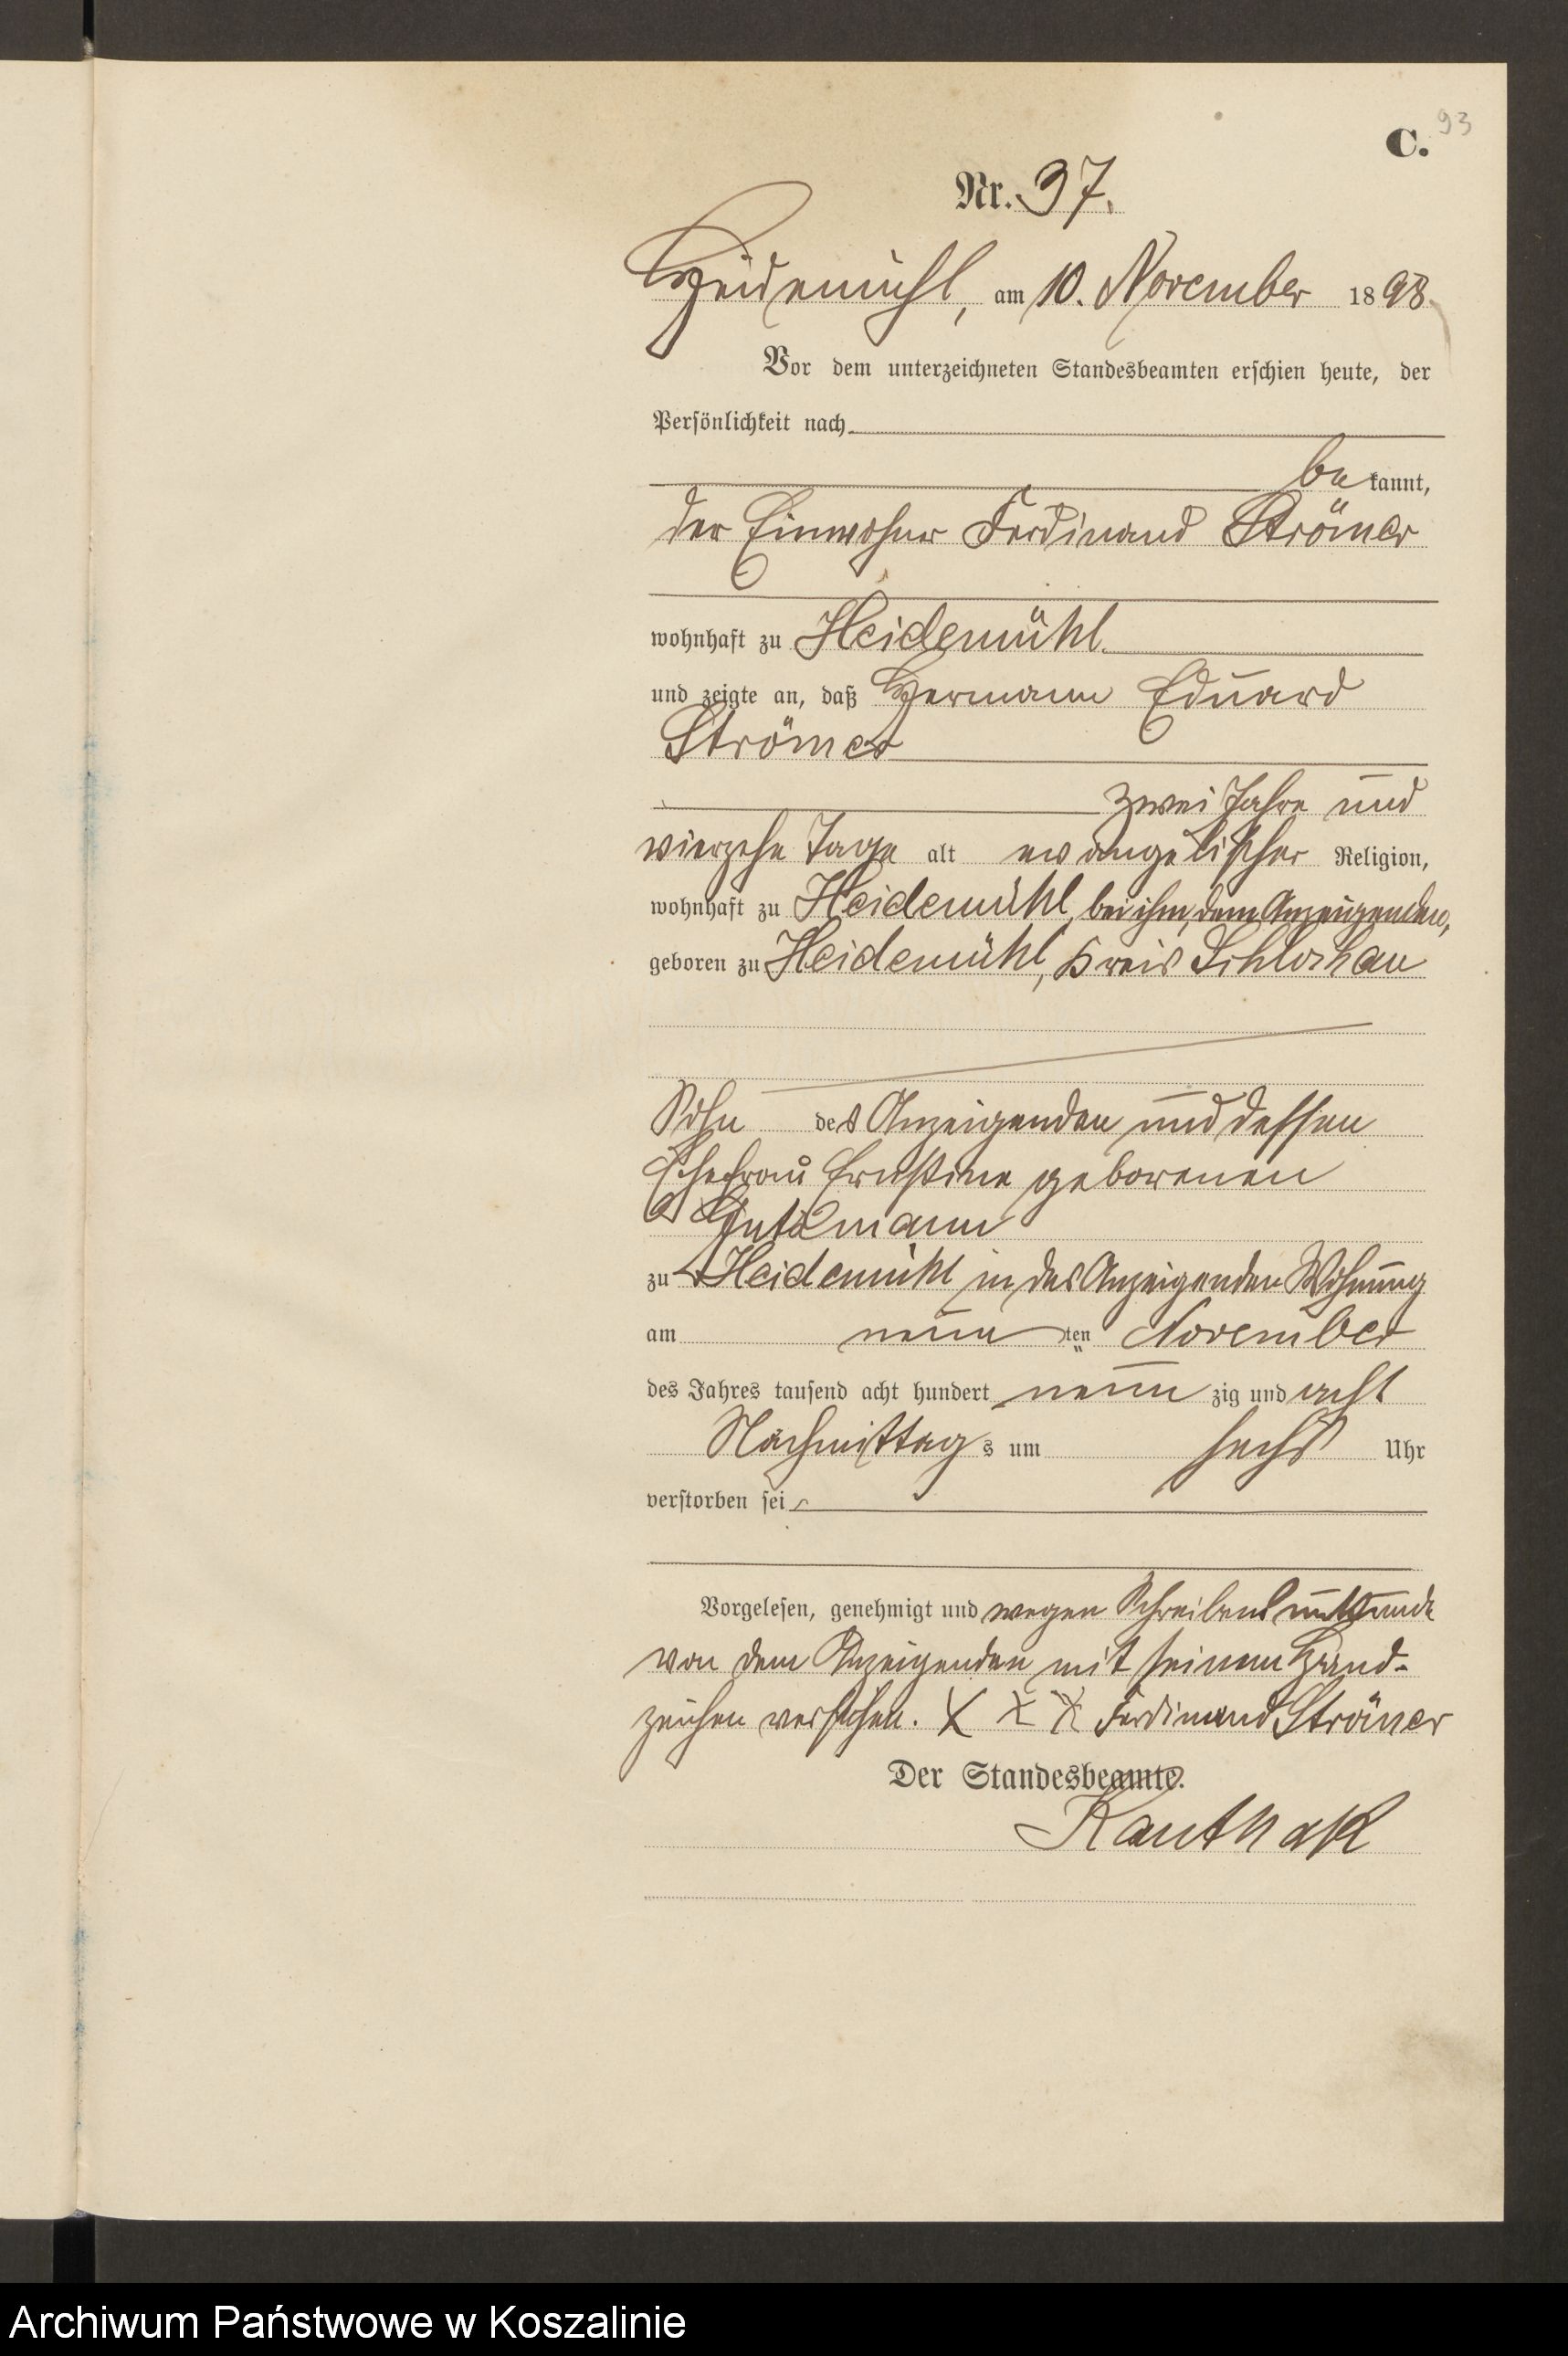 93
C.
Nr. 37.
Heidemühl, am 10. November 1898.
Vor dem unterzeichneten Standesbeamten erschien heute, der
Persönlichkeit nach
bekannt,
der Einwohner Ferdinand Strömer
wohnhaft zu Heidemühl
und zeigte an, daß Hermann Eduard
Strömer
zwei Jahre und
vierzehn Tage alt evangelischer Religion,
wohnhaft zu Heidemühl, bei ihm, dem Anzeigenden,
geboren zu Heidemühl, Kreis Schlochau
Sohn des Anzeigenden und dessen
Ehefrau Ernstine geborenen
zu Heidemühl in des Anzeigenden Wohnung
am neunten November
des Jahres tausend acht hundert neunzig und acht
Nachmittags um sechs Uhr
verstorben sei
Vorgelesen, genehmigt und wegen Schreibens
von dem Anzeigenden mit seinem Hand-
zeichen versehen. X X X Ferdinand Strömer
Der Standesbeamte.
Kauthak
Archiwum Państwowe w Koszalinie